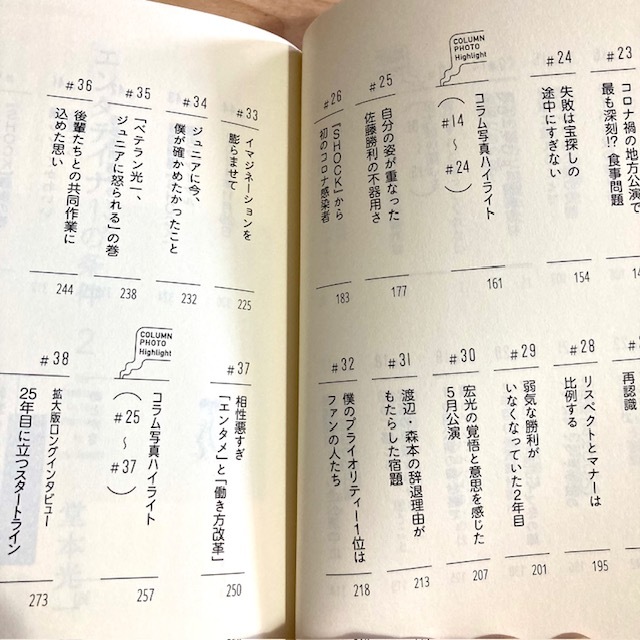 #23
コロナ禍の地方公演で
最も深刻!? 食事問題
#24
失敗は宝探しの
途中にすぎない
154
COLUMN
PHOTO
Highlight
コラム写真ハイライト
(#14〜#24)
161
#25
自分の姿が重なった
佐藤勝利の不器用さ
177
#26
『SHOCK』から
初のコロナ感染者
183
再認識
#28
リスペクトとマナーは
比例する
195
#29
弱気な勝利が
いなくなっていた2年目
201
#30
宏光の覚悟と意思を感じた
5月公演
207
#31
渡辺・森本の辞退理由が
もたらした宿題
213
#32
僕のプライオリティー1位は
ファンの人たち
218
#33
イマジネーションを
膨らませて
225
#34
ジュニアに今、
僕が確かめたかったこと
232
#35
「ベテラン光一、
ジュニアに怒られる」の巻
238
#36
後輩たちとの共同作業に
込めた思い
244
#37
相性悪すぎ
「エンタメ」と「働き方改革」
250
COLUMN
PHOTO
Highlight
コラム写真ハイライト
(#25〜#37)
257
#38
拡大版ロングインタビュー
25年目に立つスタートライン
273